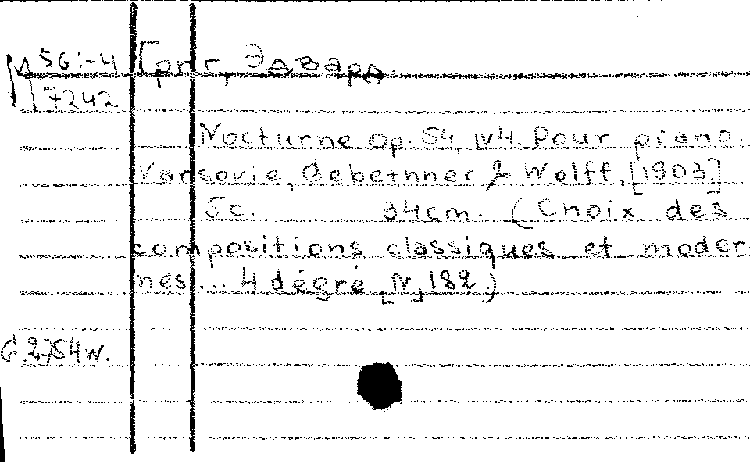 М 56:-4 Григ, Эдвард.
7242
Nocturne op. 54, N4. Pour piano.
Varsovie, Gebethner & Wolff, [1903]
5c. 34cm. (Choix des
compositions classiques et moder-
nes... 4 dégré, N, 182)
6.2754н.